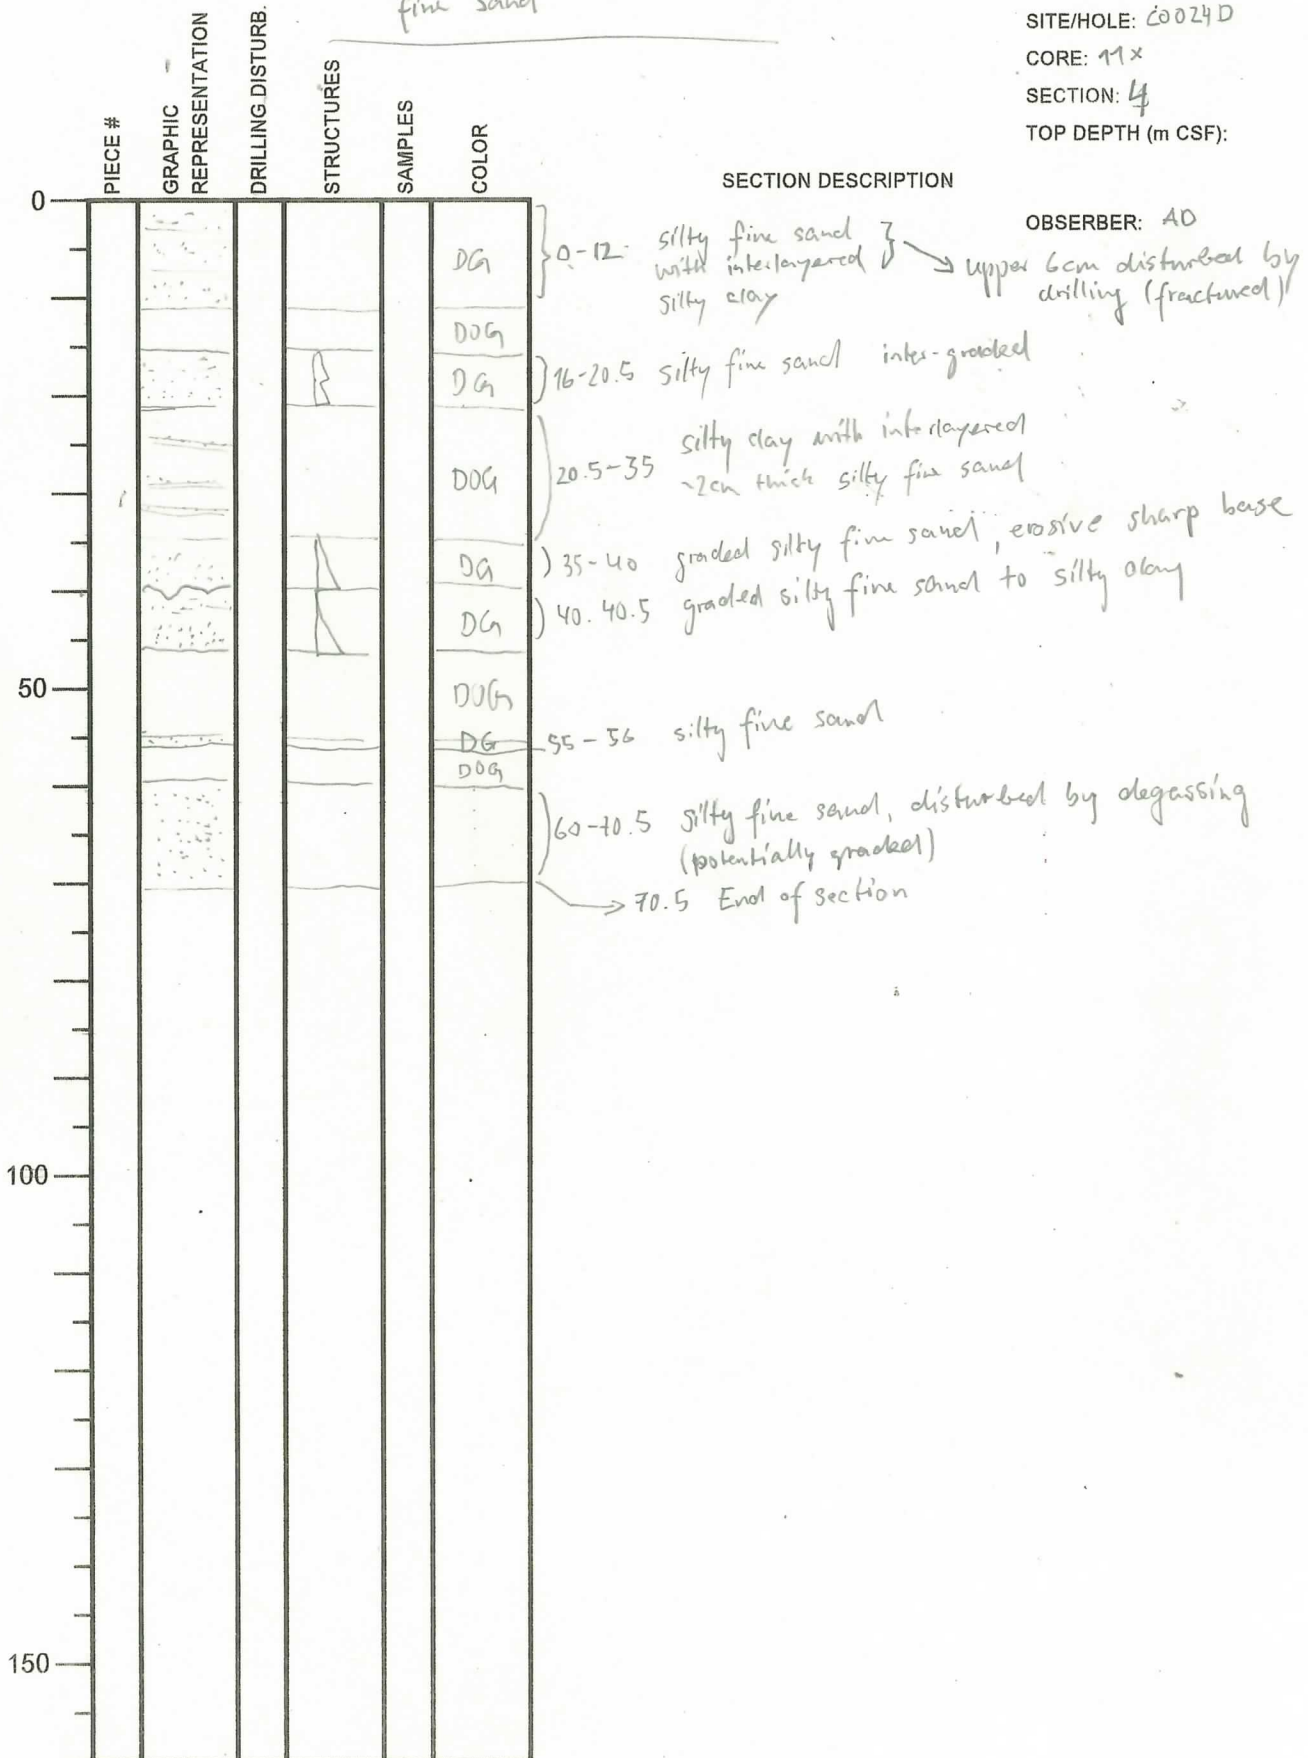 fine sand
SITE/HOLE: C0024D
CORE: 11x
SECTION: 4
TOP DEPTH (m CSF):
PIECE #
GRAPHIC REPRESENTATION
DRILLING DISTURB.
STRUCTURES
SAMPLES
COLOR
SECTION DESCRIPTION
OBSERBER: AD
0
DG
0-12 silty fine sand
with interlayered
silty clay
upper 6cm disturbed by
drilling (fractured)
DOG
DG
16-20.5 silty fine sand inter-graded
DOG
20.5-35 silty clay with interlayered
~2cm thick silty fine sand
DG
35-40 graded silty fine sand, erosive sharp base
DG
40.40.5 graded silty fine sand to silty clay
50
DOG
DG
55-56 silty fine sand
DOG
60-70.5 silty fine sand, disturbed by degassing
(potentially graded)
70.5 End of section
100
150